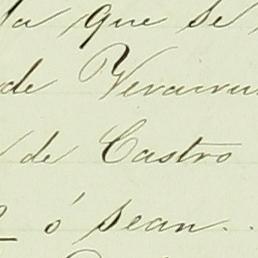 la que se
de Veracru
de Castro
ó sean..